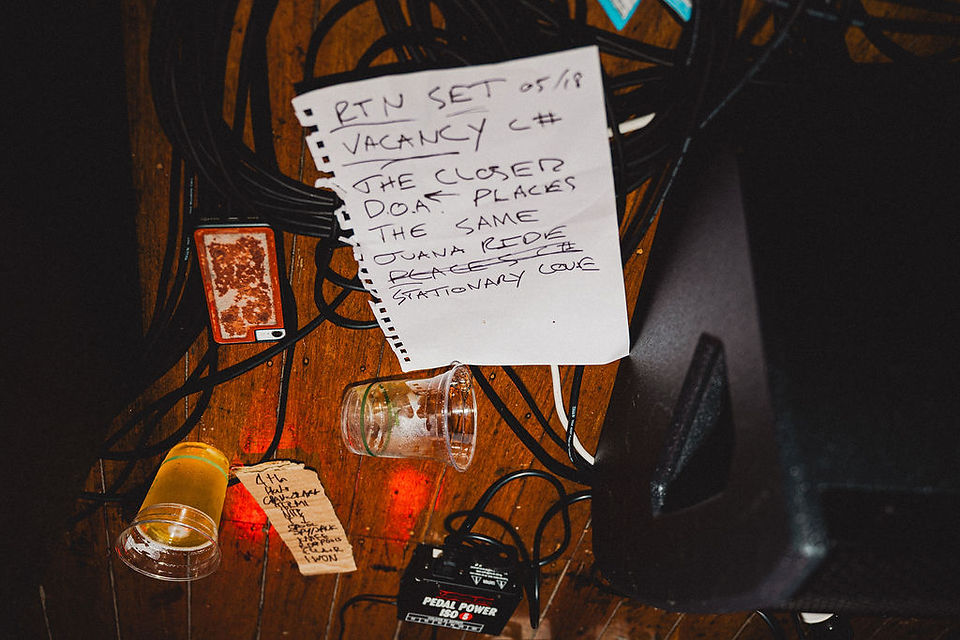 RTN SET 05/18
VACANCY C#
THE CLOSER
D.O.A. ← PLACES
THE SAME
JUANA RIDE
PLACES C#
STATIONARY LOVE
4th
NITE
I WON
PEDAL POWER
ISO 5